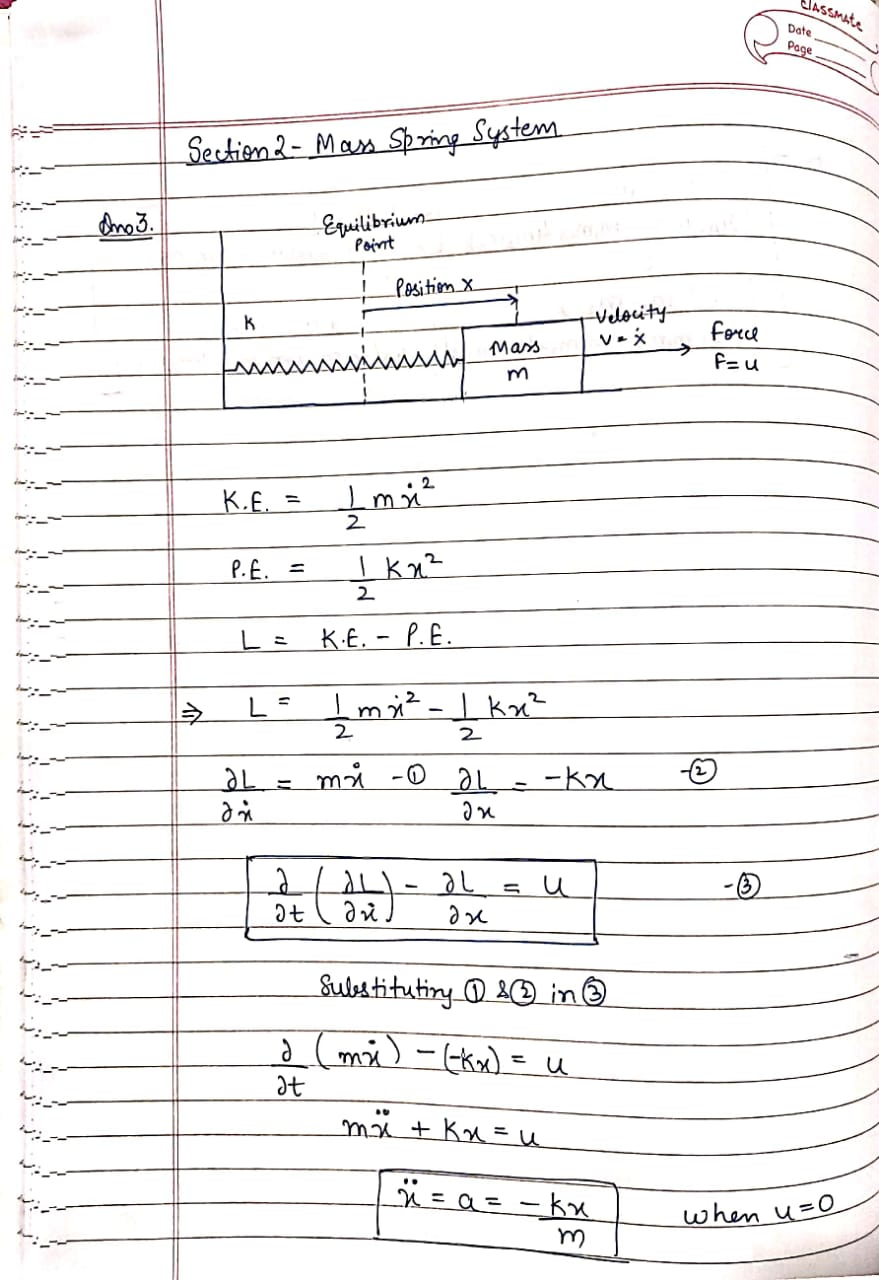 classmate
Date
Page
Section 2 - Mass Spring System
Qno 3.
Equilibrium
Point
Position x
K
Mass
m
Velocity
v = ẋ
Force
F = u
K.E. = 1/2 mẋ²
P.E. = 1/2 Kx²
L = K.E. - P.E.
⇒ L = 1/2 mẋ² - 1/2 Kx²
∂L/∂ẋ = mẋ -① ∂L/∂x = -Kx -②
∂/∂t (∂L/∂ẋ) - ∂L/∂x = u -③
Substituting ① & ② in ③
∂/∂t (mẋ) - (-Kx) = u
mẍ + Kx = u
ẍ = a = -Kx/m when u=0